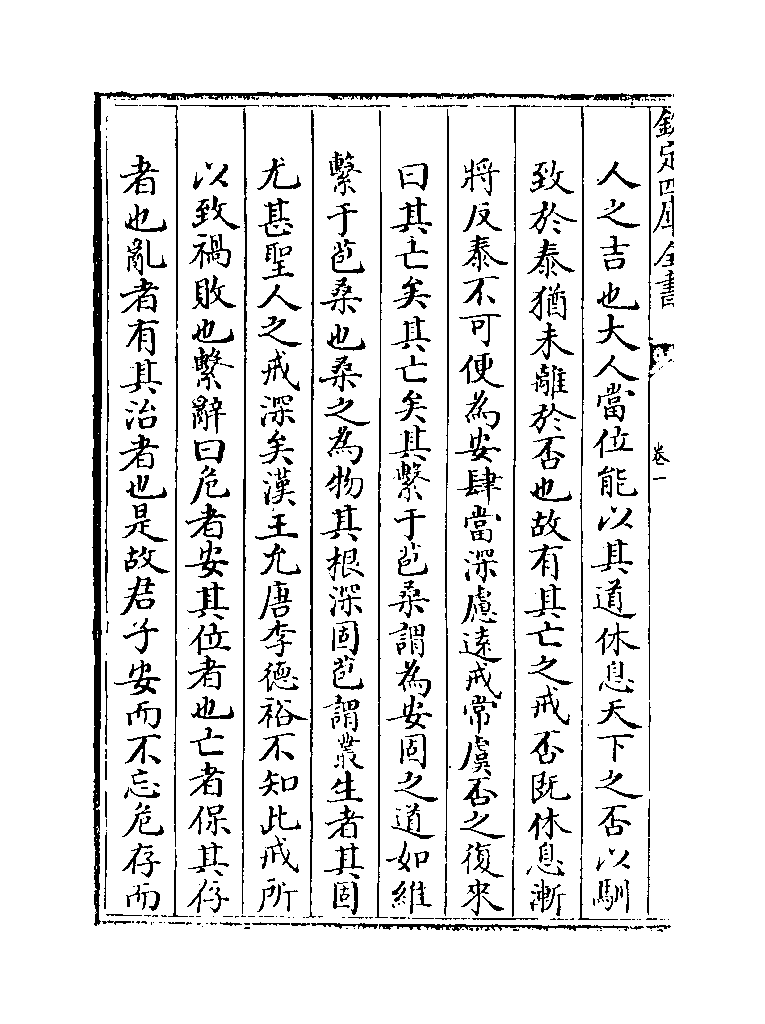 欽定四庫全書
卷一
人之吉也大人當位能以其道休息天下之否以馴
致於泰猶未離於否也故有其亡之戒否既休息漸
將反泰不可便為安肆當深慮遠戒常虞否之復來
曰其亡矣其亡矣其繫于苞桑謂為安固之道如維
繫于苞桑也桑之為物其根深固苞謂叢生者其固
尤甚聖人之戒深矣漢王允唐李德裕不知此戒所
以致禍敗也繫辭曰危者安其位者也亡者保其存
者也亂者有其治者也是故君子安而不忘危存而